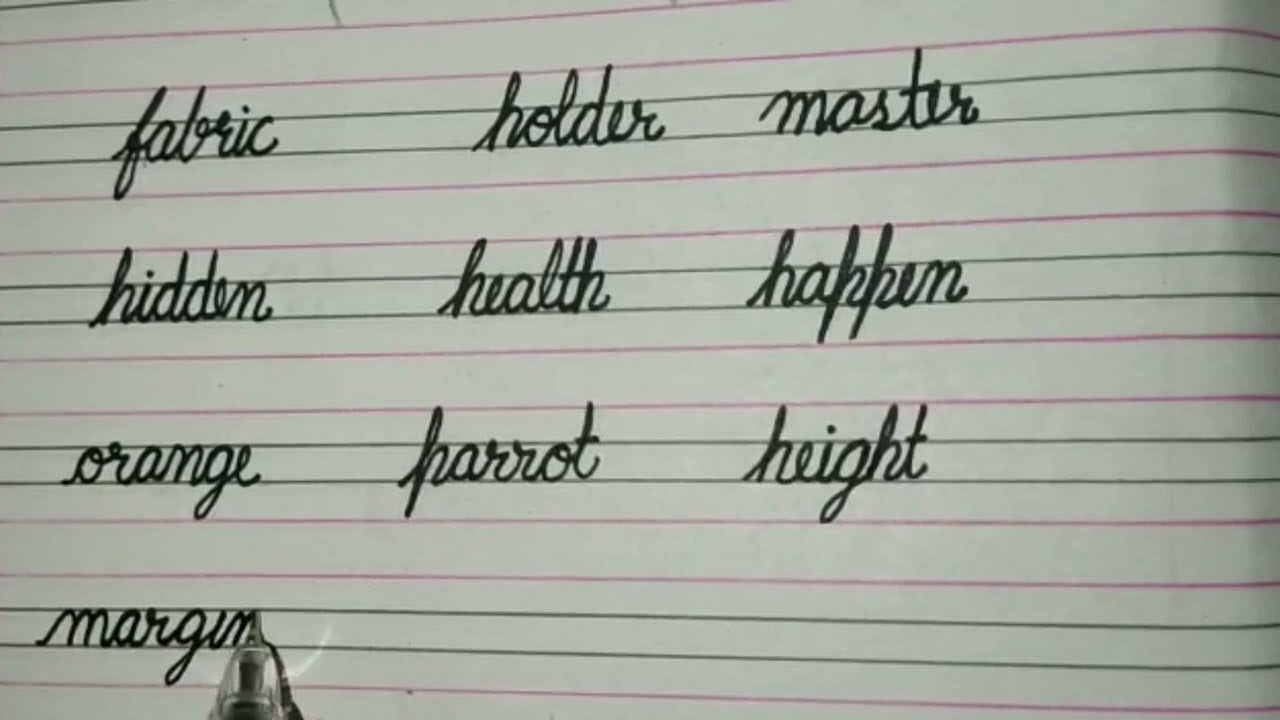 fabric holder master
hidden health happen
orange parrot height
margin